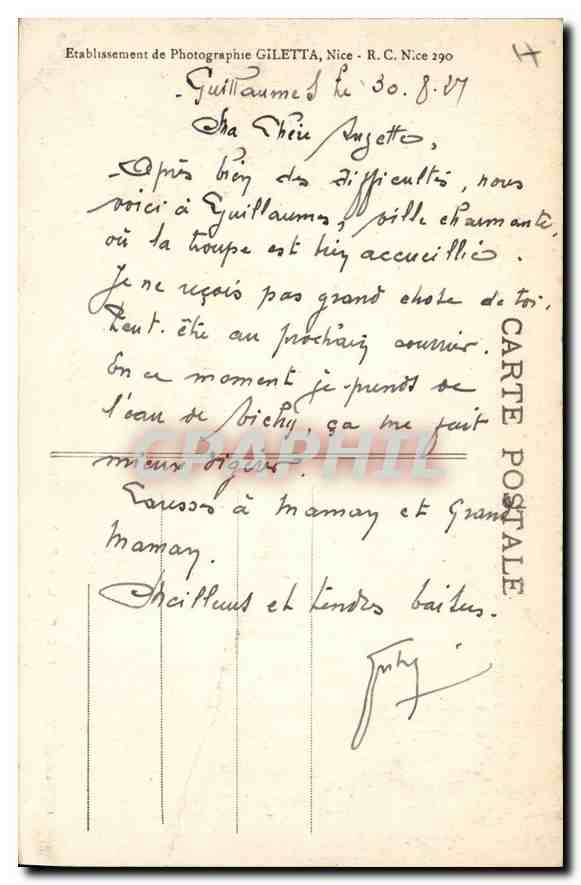 Etablissement de Photographie GILETTA, Nice - R. C. Nice 290
Guillaumes le 30. 8. 27
Ma Chère Suzette,
Après bien des difficultés, nous
voici à Guillaumes, ville charmante,
où la troupe est bien accueillie.
Je ne reçois pas grand chose de toi.
Peut-être au prochain courrier.
En ce moment je prends de
l'eau de Vichy, ça me fait
mieux digérer.
Caresses à Maman et Grand
Maman.
Meilleurs et tendres baisers.
CARTE POSTALE
CPAPHIL